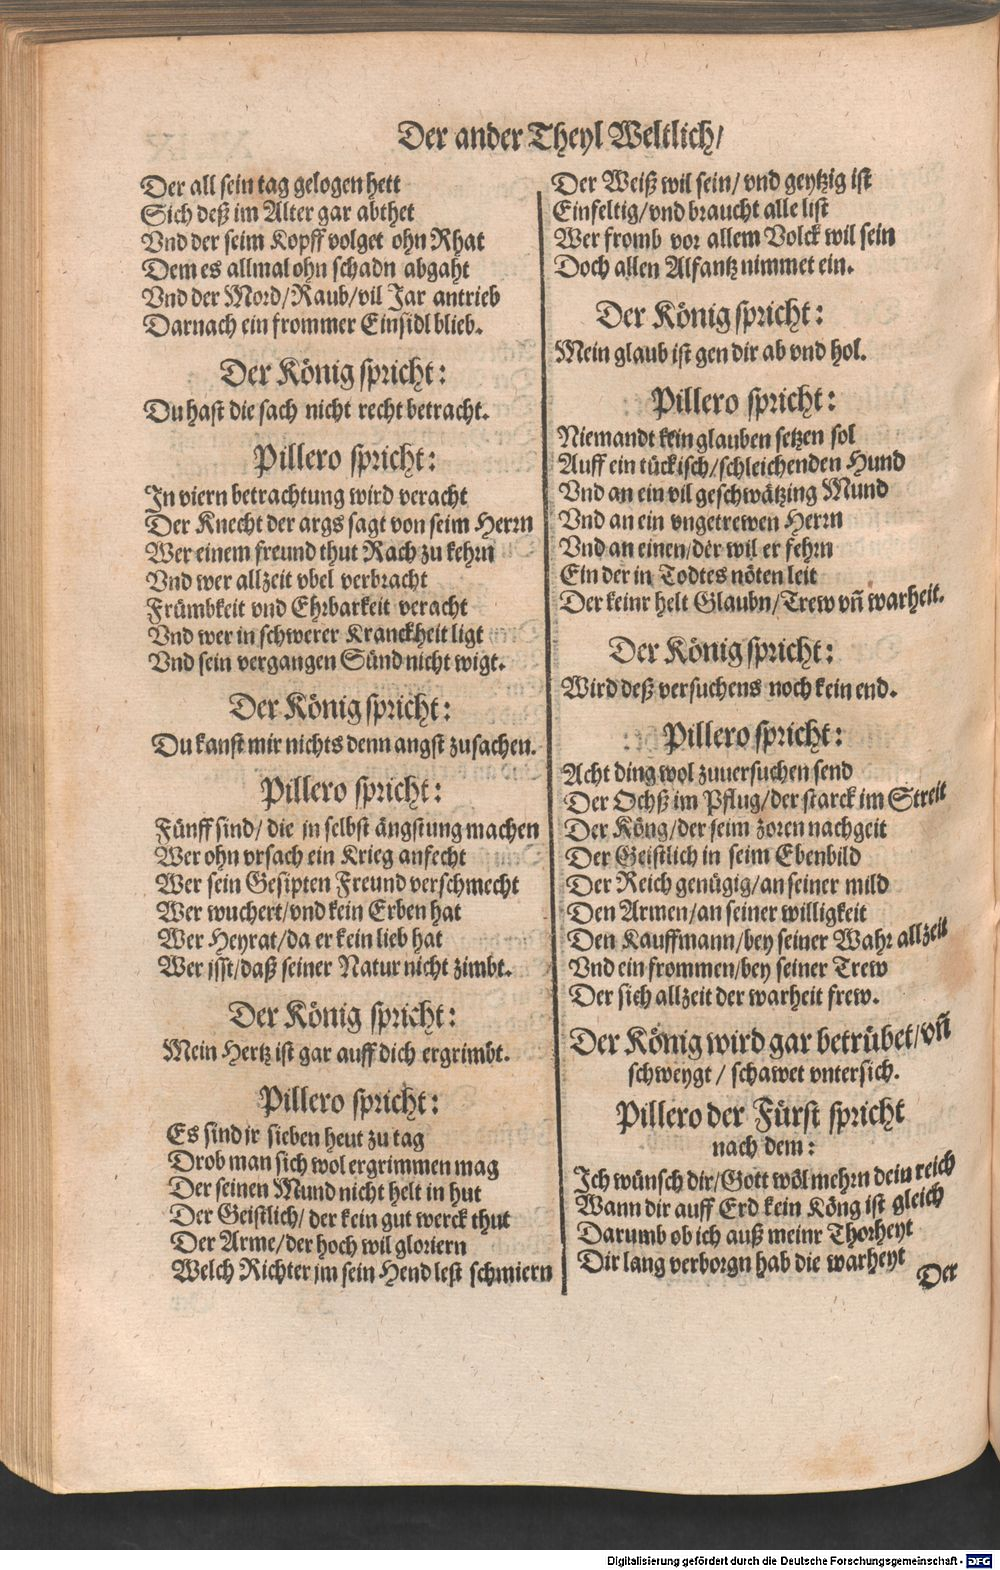 Der ander Theyl Weltlich/
Der all sein tag gelogen hett
Sich deß im Alter gar abthet
Vnd der seim Kopff volget ohn Rhat
Dem es allmal ohn schadn abgaht
Vnd der Mord/Raub/vil Jar antrieb
Darnach ein frommer Einsidl blieb.
Der König spricht:
Du hast die sach nicht recht betracht.
Pillero spricht:
In viern betrachtung wird veracht
Der Knecht der args sagt von seim Herrn
Wer einem freund thut Rach zu kehrn
Vnd wer allzeit vbel verbracht
Frümbkeit vnd Ehrbarkeit veracht
Vnd wer in schwerer Kranckheit ligt
Vnd sein vergangen Sünd nicht wigt.
Der König spricht:
Du kanst mir nichts denn angst zusachen.
Pillero spricht:
Fünff sind/ die jn selbst ängstung machen
Wer ohn vrsach ein Krieg anfecht
Wer sein Gesipten Freund verschmecht
Wer wuchert/vnd kein Erben hat
Wer Heyrat/da er kein lieb hat
Wer jsst/daß seiner Natur nicht zimbt.
Der König spricht:
Mein Hertz ist gar auff dich ergrimbt.
Pillero spricht:
Es sind jr sieben heut zu tag
Drob man sich wol ergrimmen mag
Der seinen Mund nicht helt in hut
Der Geistlich/ der kein gut werck thut
Der Arme/der hoch wil gloriern
Welch Richter jm sein Hend lest schmiern
Der Weiß wil sein/ vnd geytzig ist
Einfeltig/vnd braucht alle list
Wer fromb vor allem Volck wil sein
Doch allen Alfantz nimmet ein.
Der König spricht:
Mein glaub ist gen dir ab vnd hol.
Pillero spricht:
Niemandt kein glauben setzen sol
Auff ein tückisch/schleichenden Hund
Vnd an ein vil geschwätzing Mund
Vnd an ein vngetrewen Herrn
Vnd an einen/der wil er fehrn
Ein der in Todtes nöten leit
Der keinr helt Glaubn/Trew vñ warheit.
Der König spricht:
Wird deß versuchens noch kein end.
Pillero spricht:
Acht ding wol zuuersuchen send
Der Ochß im Pflug/der starck im Streit
Der Köng/der seim zoren nachgeit
Der Geistlich in seim Ebenbild
Der Reich genügig/an seiner mild
Den Armen/an seiner willigkeit
Den Kauffmann/bey seiner Wahr allzeit
Vnd ein frommen/bey seiner Trew
Der sich allzeit der warheit frew.
Der König wird gar betrübet/vñ
schweygt / schawet vntersich.
Pillero der Fürst spricht
nach dem:
Ich wünsch dir/Gott wöl mehrn dein reich
Wann dir auff Erd kein Köng ist gleich
Darumb ob ich auß meinr Thorheyt
Dir lang verborgn hab die warheyt
Der
Digitalisierung gefördert durch die Deutsche Forschungsgemeinschaft - DFG